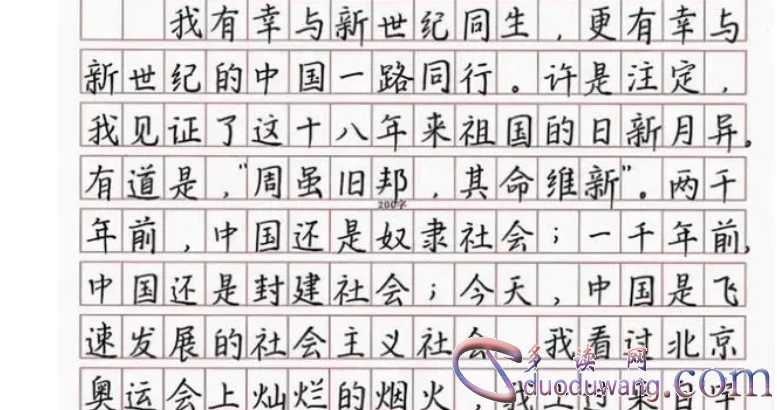 我有幸与新世纪同生，更有幸与
新世纪的中国一路同行。许是注定，
我见证了这十八年来祖国的日新月异。
有道是，“周虽旧邦，其命维新”。两千
200字
年前，中国还是奴隶社会；一千年前，
中国还是封建社会；今天，中国是飞
速发展的社会主义社会 我看过北京
奥运会上灿烂的烟火，我
多读网
duoduwang.com